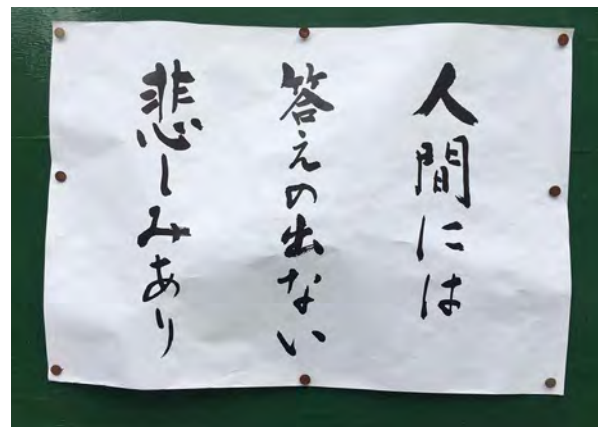 人間には
答えの出ない
悲しみあり